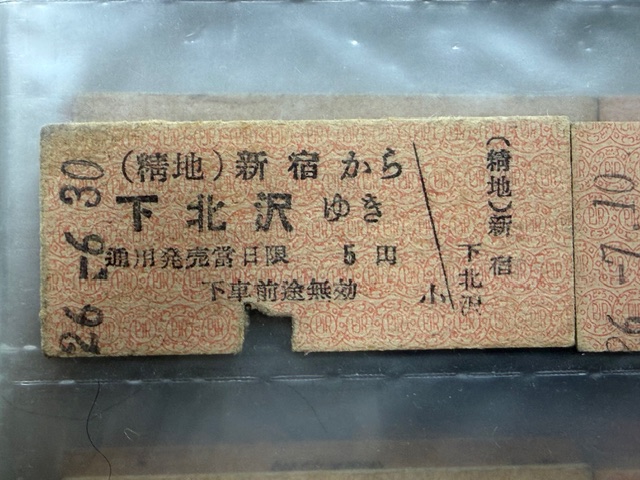 26.-6.30
(精地)新宿から
下北沢ゆき
通用発売当日限 5円
下車前途無効
小
(精地)新宿
下北沢
26 -7.10